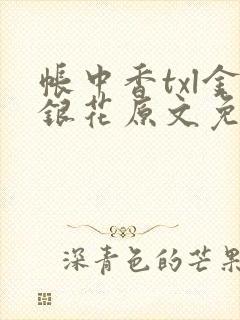 帳中香txl金
銀花原文免
深青色的芒果